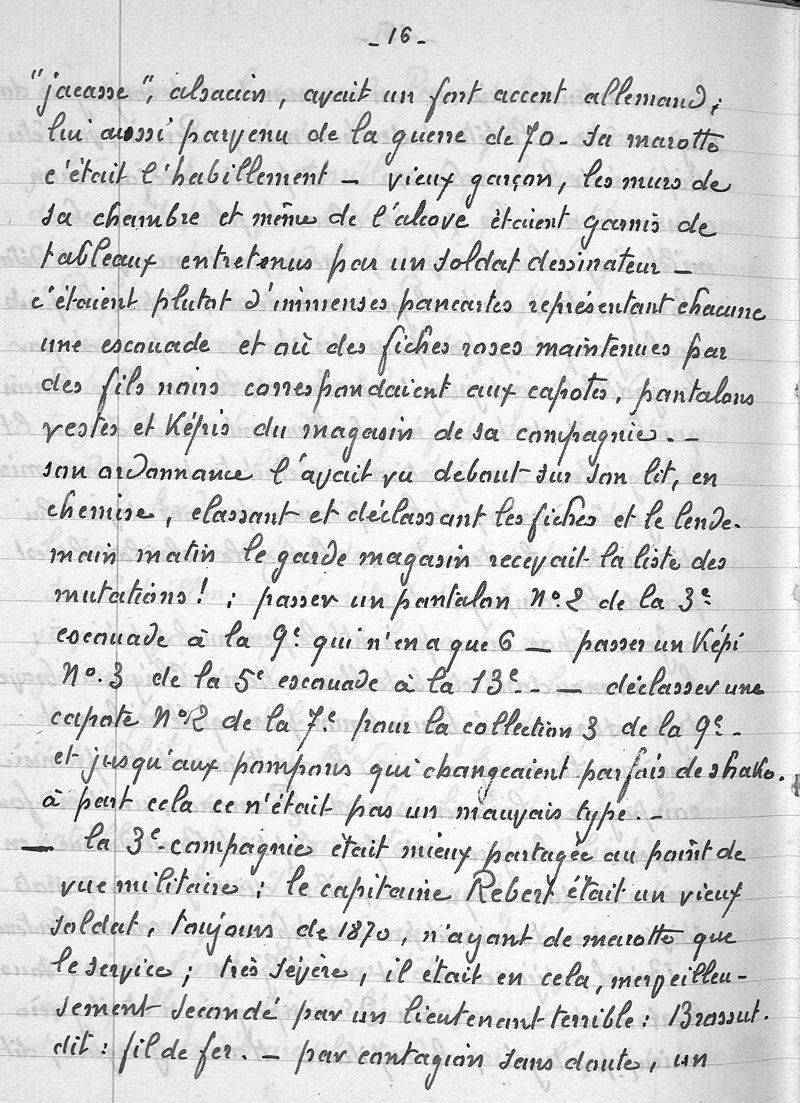 - 16 -
"jacasse", alsacien, avait un fort accent allemand;
lui aussi parvenu de la guerre de 70 - sa marotte
c'était l'habillement - vieux garçon, les murs de
sa chambre et même de l'alcove étaient garnis de
tableaux entretenus par un soldat dessinateur -
c'étaient plutot d'immenses pancartes représentant chacune
une escouade et où des fiches roses maintenues par
des fils noirs correspondaient aux capotes, pantalons
vestes et képis du magasin de sa compagnie. -
son ordonnance l'avait vu debout sur son lit, en
chemise, classant et déclassant les fiches et le lende-
main matin le garde magasin recevait la liste des
mutations! ; passer un pantalon No. 2 de la 3e
escouade à la 9e qui n'en a que 6 - passer un Képi
No. 3 de la 5e escouade à la 13e - - déclasser une
capote No 2 de la 7e pour la collection 3 de la 9e -
et jusqu'aux pompons qui changeaient parfois de shako.
à part cela ce n'était pas un mauvais type. -
- la 3e compagnie était mieux partagée au point de
vue militaire ; le capitaine Rebert était un vieux
soldat, toujours de 1870, n'ayant de marotte que
le service ; très sévère, il était en cela, merveilleu-
sement secondé par un lieutenant terrible : Brassut.
dit : fil de fer. - par contagion sans doute, un